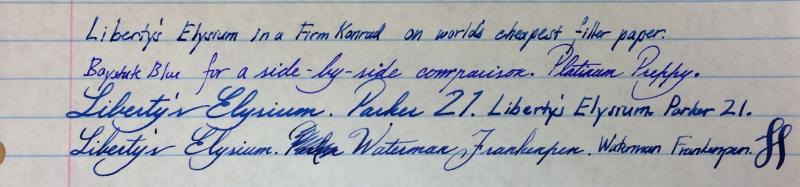 Liberty's Elysium in a Firm Konrad on world's cheapest filler paper.
Baystate Blue for a side-by-side comparison. Platinum Preppy.
Liberty's Elysium. Parker 21. Liberty's Elysium Parker 21.
Liberty's Elysium. Parker Waterman Frankenpen. Waterman Frankenpen.